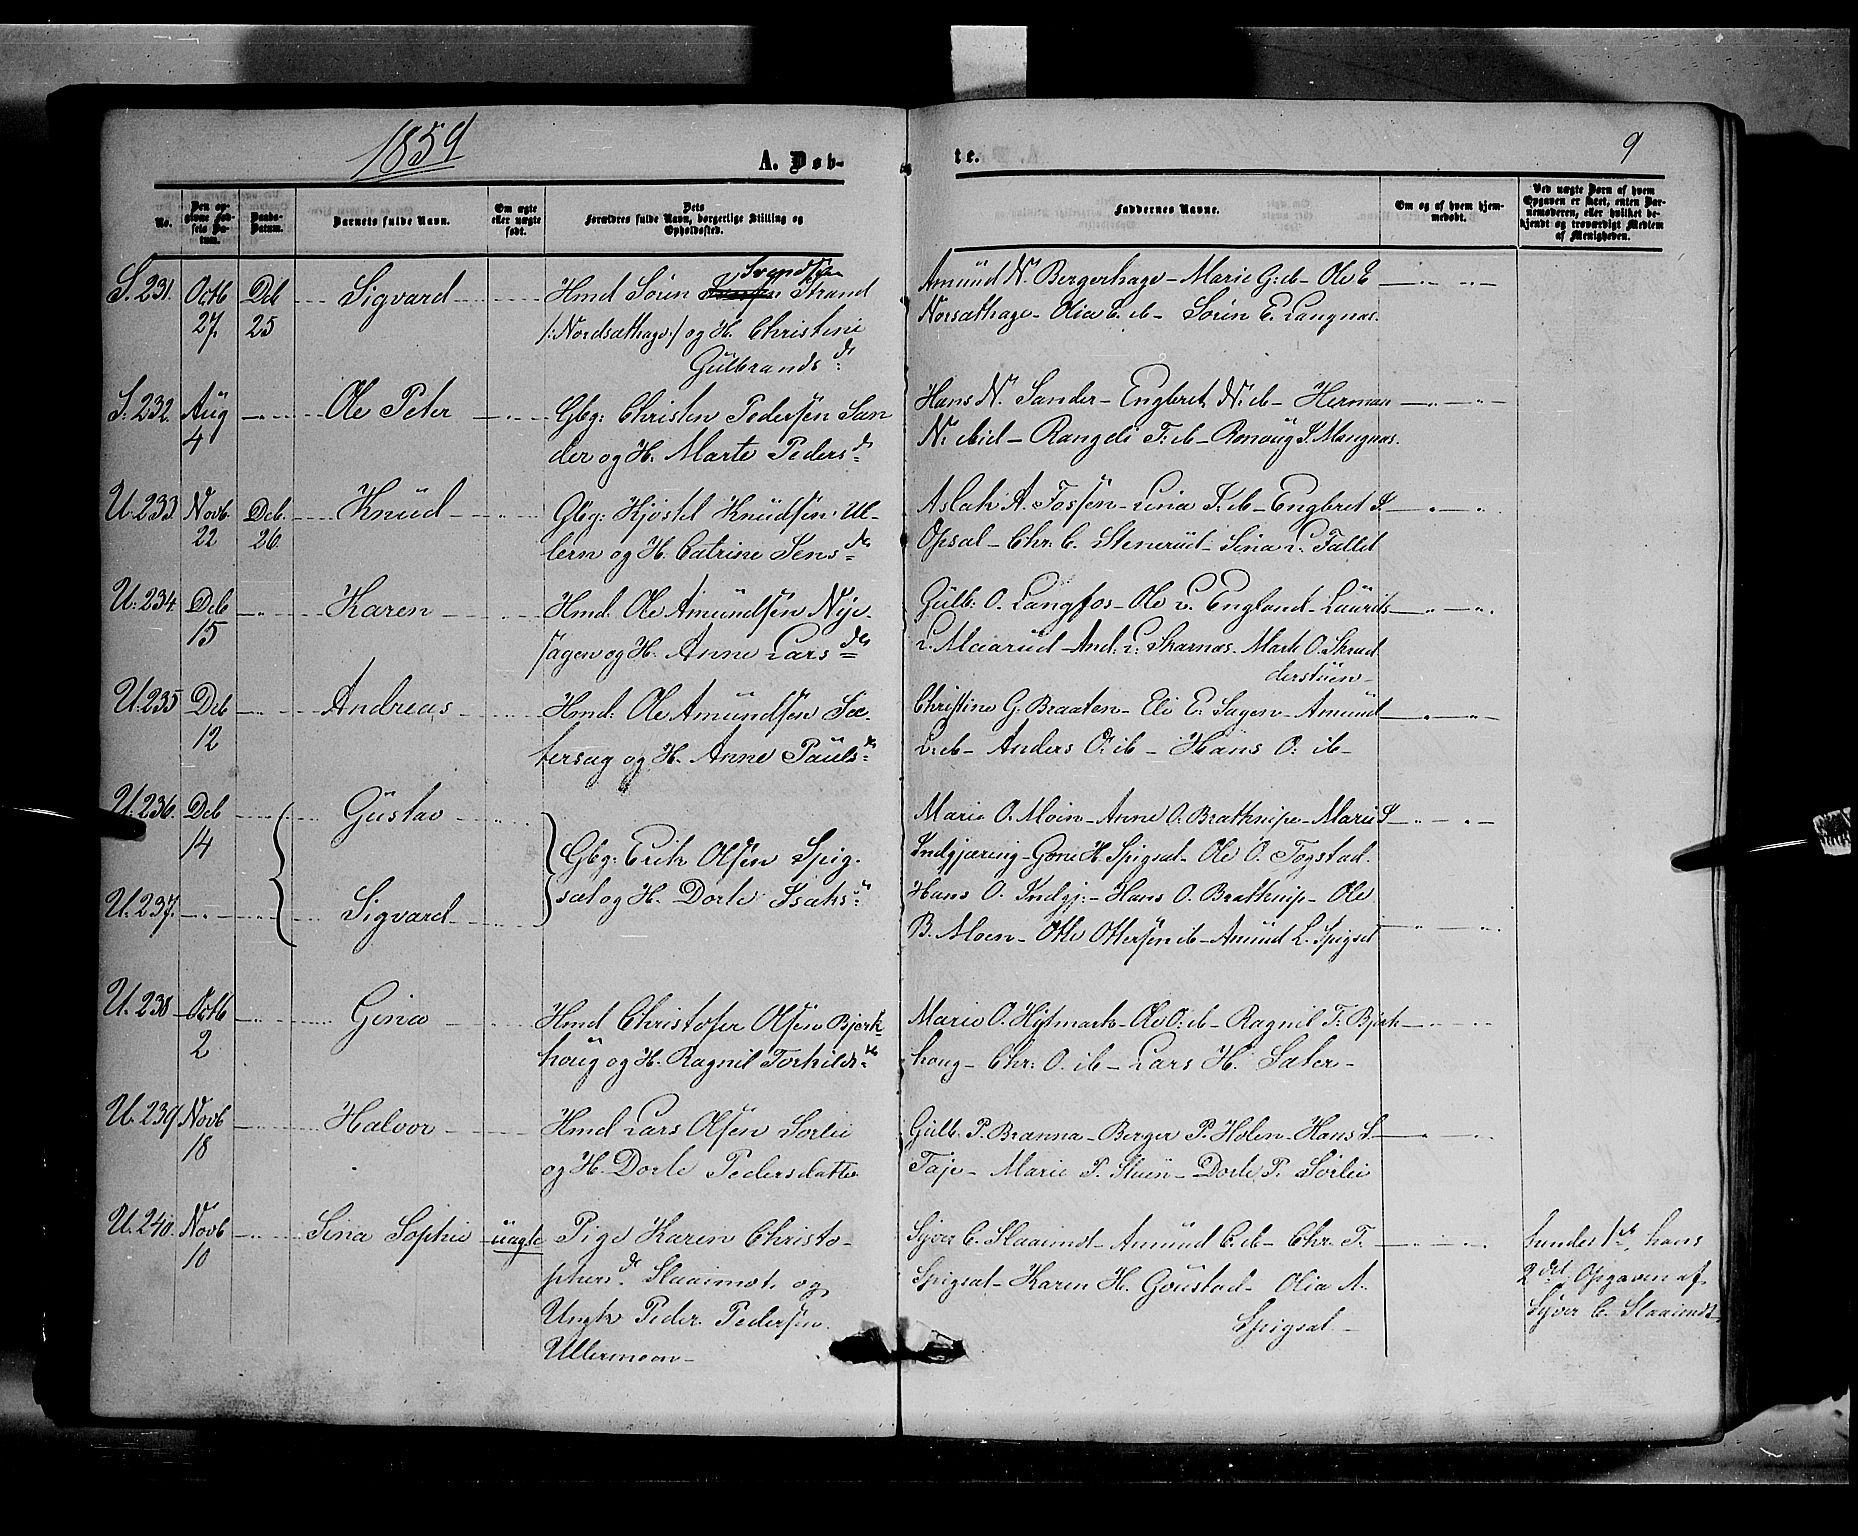 1859
A. Døb-
te.
9
No.
Den opgivne Fødsels Datum.
Daabs-Datum.
Barnets fulde Navn.
Om ægte eller uægte født.
Dets Forældres fulde Navn, borgerlige Stilling og Opholdssted.
Faddernes Navne.
Om og af hvem hjemmedøbt.
Ved uægte Børn af hvem Opgaven er skeet, enten Barnemoderen, eller hvilket bekjendt og troværdigt Medlem af Menigheden.
S. 231. Octb 27. Deb 25 Sigvard
Hmd Søren Svendsen Strand
/: Nordsæthage :/ og H. Christine
Gulbrandsd:
Amünd N. Bergerhage - Marie G: ib - Ole E
Norsæthage - Olia E. ib - Søren E. Langnæs.
S. 232. Aug 4 Ole Peter
Gbg: Christen Pedersen San
der og H. Marte Pedersd:
Hans N. Sander - Engbret N: ib - Herman
N: ibid - Rangdi T: ib - Ronoüg S. Mangnæs.
U. 233. Novb. 22 Deb. 26. Knüd
Gbg: Kjostel Knüdsen Ul-
lern og H. Catrine Jensd:
Aslak A. Fossen - Lina K. ib - Engbret S.
Opsal - Chr. C. Stenerüd - Sina L. Fallet
U: 234. Deb 15 Karen
Hmd. Ole Amündsen Nye-
sagen og H. Anne Larsd:
Gülb: O. Langfos - Ole L. England - Laürits
L. Maarüd - And: L: Skarnæs. Marte O. Skrad
derstüen -
U. 235 Deb 12 Andreas
Hmd: Ole Amündsen Sæ-
tersag og H. Anne Paülsd:
Christine G. Braaten - Eli E. Sagen - Amünd
L: ib - Anders O: ib - Hans O: ib -
U. 236. Deb 14 Güstav
U. 237. Sigvard
Gbg: Erik Olsen Spig-
sæt og H. Dorte Isaksd:
Marie O. Moen - Anne O. Brathnipe - Marie S
Indgjæring - Gone H. Spigsæt - Ole O. Togstad.
Hans O. Indgj: - Hans O. Brathnip - Ole
B. Moen - Otto Ottersen ib - Amünd L. Spigset
U. 238 Octb 2 Gina
Hmd Christofer Olsen Bjerk-
houg og H. Ragnil Torkildsd:
Marie O. Hytmark - Ole O: ib - Ragnil T: Bjerk
houg - Chr: O. ib - Lars H. Sater -
U. 239 Novb 18 Halvor
Hmd Lars Olsen Sorlie
og H. Dorte Pedersdatte
Gülb. P. Brænna - Berger P. Holen - Hans S.
Taje - Marie P. Stüen - Dorte P. Sorlie
U. 240. Novb 10 Sina Sophie uægte
Pige Karen Christo-
phersd. Slaaimot. og
Ungk Peder Pedersen
Ullermoen -
Syver C. Slaaimot - Amünd C. ib - Chr. T.
Spigsæt - Karen H. Goustad - Olia A.
Spigsæt -
hendes 1st, hans
2det Opgaven af
Syver C. Slaaimot